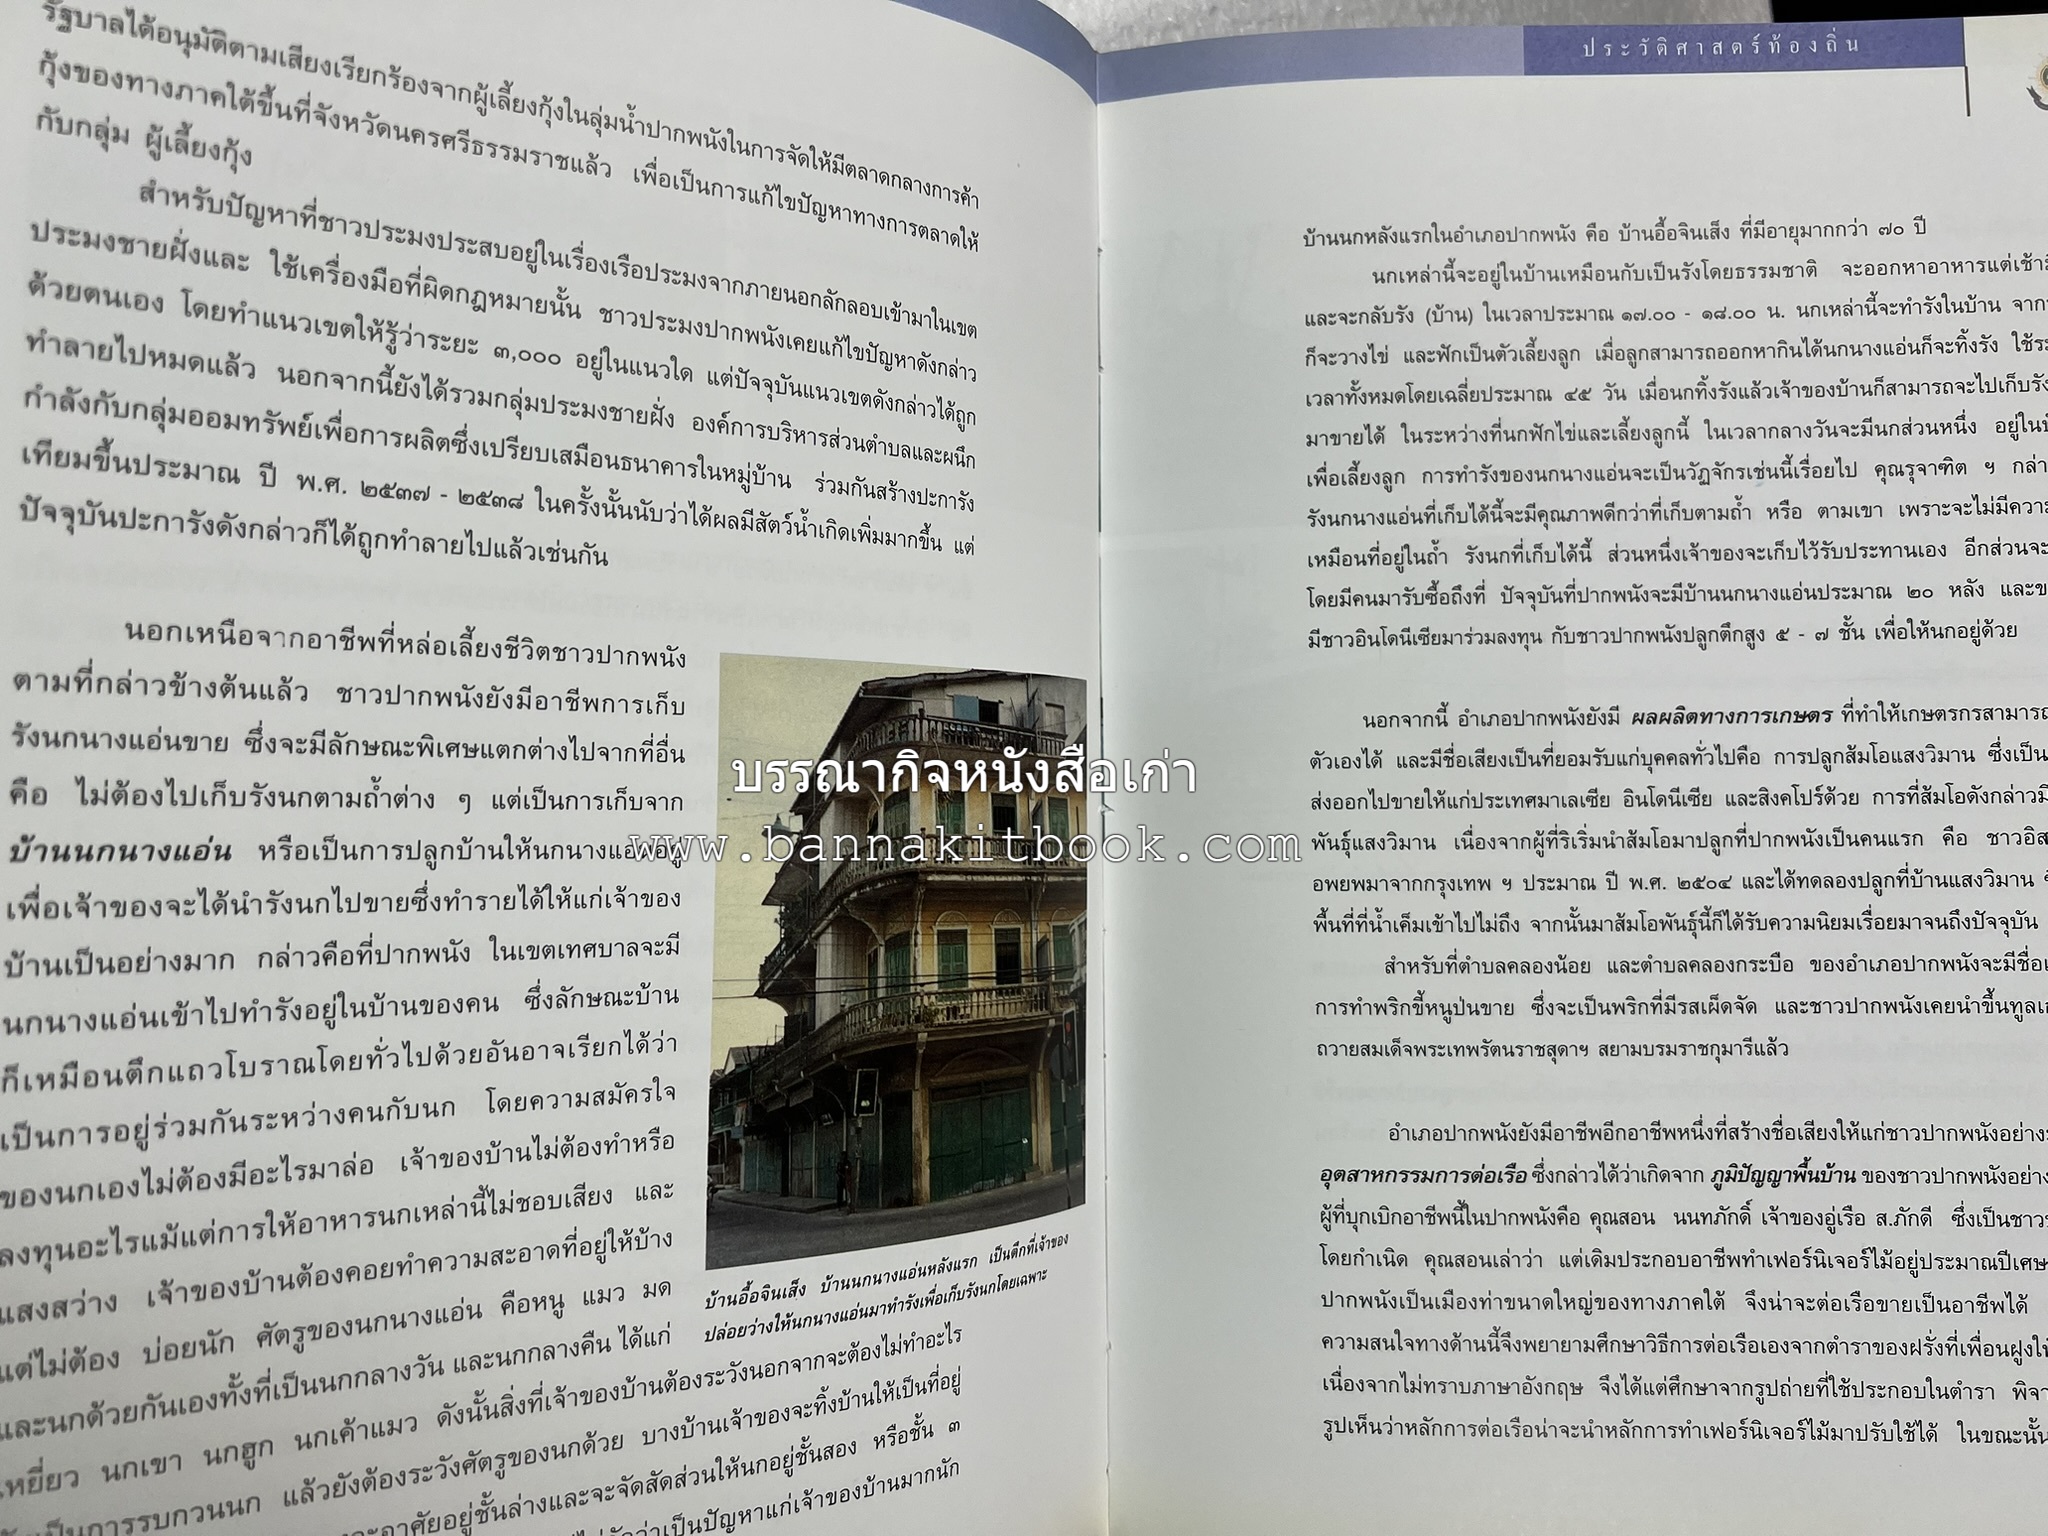 รัฐบาลได้อนุมัติตามเสียงเรียกร้องจากผู้เลี้ยงกุ้งในลุ่มน้ำปากพนังในการจัดให้มีตลาดกลางการค้า
กุ้งของทางภาคใต้ขึ้นที่จังหวัดนครศรีธรรมราชแล้ว เพื่อเป็นการแก้ไขปัญหาทางการตลาดให้
กับกลุ่ม ผู้เลี้ยงกุ้ง
สำหรับปัญหาที่ชาวประมงประสบอยู่ในเรื่องเรือประมงจากภายนอกลักลอบเข้ามาในเขต
ประมงชายฝั่งและ ใช้เครื่องมือที่ผิดกฎหมายนั้น ชาวประมงปากพนังเคยแก้ไขปัญหาดังกล่าว
ด้วยตนเอง โดยทำแนวเขตให้รู้ว่าระยะ ๓,๐๐๐ อยู่ในแนวใด แต่ปัจจุบันแนวเขตดังกล่าวได้ถูก
ทำลายไปหมดแล้ว นอกจากนี้ยังได้รวมกลุ่มประมงชายฝั่ง องค์การบริหารส่วนตำบลและผนึก
กำลังกับกลุ่มออมทรัพย์เพื่อการผลิตซึ่งเปรียบเสมือนธนาคารในหมู่บ้าน ร่วมกันสร้างปะการัง
เทียมขึ้นประมาณ ปี พ.ศ. ๒๕๓๗ - ๒๕๓๘ ในครั้งนั้นนับว่าได้ผลมีสัตว์น้ำเกิดเพิ่มมากขึ้น แต่
ปัจจุบันปะการังดังกล่าวก็ได้ถูกทำลายไปแล้วเช่นกัน
นอกเหนือจากอาชีพที่หล่อเลี้ยงชีวิตชาวปากพนัง
ตามที่กล่าวข้างต้นแล้ว ชาวปากพนังยังมีอาชีพการเก็บ
รังนกนางแอ่นขาย ซึ่งจะมีลักษณะพิเศษแตกต่างไปจากที่อื่น
คือ ไม่ต้องไปเก็บรังนกตามถ้ำต่าง ๆ แต่เป็นการเก็บจาก
บ้านนกนางแอ่น หรือเป็นการปลูกบ้านให้นกนางแอ่นอยู่
เพื่อเจ้าของจะได้นำรังนกไปขายซึ่งทำรายได้ให้แก่เจ้าของ
บ้านเป็นอย่างมาก กล่าวคือที่ปากพนัง ในเขตเทศบาลจะมี
นกนางแอ่นเข้าไปทำรังอยู่ในบ้านของคน ซึ่งลักษณะบ้าน
ก็เหมือนตึกแถวโบราณโดยทั่วไปด้วยอันอาจเรียกได้ว่า
เป็นการอยู่ร่วมกันระหว่างคนกับนก โดยความสมัครใจ
ของนกเองไม่ต้องมีอะไรมาล่อ เจ้าของบ้านไม่ต้องทำหรือ
ลงทุนอะไรแม้แต่การให้อาหารนกเหล่านี้ไม่ชอบเสียง และ
แสงสว่าง เจ้าของบ้านต้องคอยทำความสะอาดที่อยู่ให้บ้าง
แต่ไม่ต้อง บ่อยนัก ศัตรูของนกนางแอ่น คือหนู แมว มด
และนกด้วยกันเองทั้งที่เป็นนกกลางวัน และนกกลางคืน ได้แก่
เหยี่ยว นกเขา นกฮูก นกเค้าแมว ดังนั้นสิ่งที่เจ้าของบ้านต้องระวังนอกจากจะต้องไม่ทำอะไร
เป็นการรบกวนนก แล้วยังต้องระวังศัตรูของนกด้วย บางบ้านเจ้าของจะทิ้งบ้านให้เป็นที่อยู่
อาศัยอยู่ชั้นล่างและจะจัดสัดส่วนให้นกอยู่ชั้นสอง หรือชั้น ๓
ว่าเป็นปัญหาแก่เจ้าของบ้านมากนัก
บ้านอื้อจินเส็ง บ้านนกนางแอ่นหลังแรก เป็นตึกที่เจ้าของ
ปล่อยว่างให้นกนางแอ่นมาทำรังเพื่อเก็บรังนกโดยเฉพาะ
บรรณากิจหนังสือเก่า
www.bannakitbook.com
ประวัติศาสตร์ท้องถิ่น
บ้านนกหลังแรกในอำเภอปากพนัง คือ บ้านอื้อจินเส็ง ที่มีอายุมากกว่า ๗๐ ปี
นกเหล่านี้จะอยู่ในบ้านเหมือนกับเป็นรังโดยธรรมชาติ จะออกหาอาหารแต่เช้า
และจะกลับรัง (บ้าน) ในเวลาประมาณ ๑๗.๐๐ - ๑๘.๐๐ น. นกเหล่านี้จะทำรังในบ้าน จาก
ก็จะวางไข่ และฟักเป็นตัวเลี้ยงลูก เมื่อลูกสามารถออกหากินได้นกนางแอ่นก็จะทิ้งรัง ใช้ระ
เวลาทั้งหมดโดยเฉลี่ยประมาณ ๔๕ วัน เมื่อนกทิ้งรังแล้วเจ้าของบ้านก็สามารถจะไปเก็บรัง
มาขายได้ ในระหว่างที่นกฟักไข่และเลี้ยงลูกนี้ ในเวลากลางวันจะมีนกส่วนหนึ่ง อยู่ใน
เพื่อเลี้ยงลูก การทำรังของนกนางแอ่นจะเป็นวัฏจักรเช่นนี้เรื่อยไป คุณรุจาฑิต ฯ กล่า
รังนกนางแอ่นที่เก็บได้นี้จะมีคุณภาพดีกว่าที่เก็บตามถ้ำ หรือ ตามเขา เพราะจะไม่มีความ
เหมือนที่อยู่ในถ้ำ รังนกที่เก็บได้นี้ ส่วนหนึ่งเจ้าของจะเก็บไว้รับประทานเอง อีกส่วนจะ
โดยมีคนมารับซื้อถึงที่ ปัจจุบันที่ปากพนังจะมีบ้านนกนางแอ่นประมาณ ๒๐ หลัง และข
มีชาวอินโดนีเซียมาร่วมลงทุน กับชาวปากพนังปลูกตึกสูง ๕ - ๗ ชั้น เพื่อให้นกอยู่ด้วย
นอกจากนี้ อำเภอปากพนังยังมี ผลผลิตทางการเกษตร ที่ทำให้เกษตรกรสามารถ
ตัวเองได้ และมีชื่อเสียงเป็นที่ยอมรับแก่บุคคลทั่วไปคือ การปลูกส้มโอแสงวิมาน ซึ่งเป็น
ส่งออกไปขายให้แก่ประเทศมาเลเซีย อินโดนีเซีย และสิงคโปร์ด้วย การที่ส้มโอดังกล่าวมี
พันธุ์แสงวิมาน เนื่องจากผู้ที่ริเริ่มนำส้มโอมาปลูกที่ปากพนังเป็นคนแรก คือ ชาวอิส
อพยพมาจากกรุงเทพ ฯ ประมาณ ปี พ.ศ. ๒๕๐๔ และได้ทดลองปลูกที่บ้านแสงวิมาน
พื้นที่ที่น้ำเค็มเข้าไปไม่ถึง จากนั้นมาส้มโอพันธุ์นี้ก็ได้รับความนิยมเรื่อยมาจนถึงปัจจุบัน
สำหรับที่ตำบลคลองน้อย และตำบลคลองกระบือ ของอำเภอปากพนังจะมีชื่อ
การทำพริกขี้หนูป่นขาย ซึ่งจะเป็นพริกที่มีรสเผ็ดจัด และชาวปากพนังเคยนำขึ้นทูลเ
ถวายสมเด็จพระเทพรัตนราชสุดาฯ สยามบรมราชกุมารีแล้ว
อำเภอปากพนังยังมีอาชีพอีกอาชีพหนึ่งที่สร้างชื่อเสียงให้แก่ชาวปากพนังอย่าง
อุตสาหกรรมการต่อเรือ ซึ่งกล่าวได้ว่าเกิดจาก ภูมิปัญญาพื้นบ้าน ของชาวปากพนังอย่าง
ผู้ที่บุกเบิกอาชีพนี้ในปากพนังคือ คุณสอน นนทภักดิ์ เจ้าของอู่เรือ ส.ภักดี ซึ่งเป็นชาว
โดยกำเนิด คุณสอนเล่าว่า แต่เดิมประกอบอาชีพทำเฟอร์นิเจอร์ไม้อยู่ประมาณปีเศษ
ปากพนังเป็นเมืองท่าขนาดใหญ่ของทางภาคใต้ จึงน่าจะต่อเรือขายเป็นอาชีพได้
ความสนใจทางด้านนี้จึงพยายามศึกษาวิธีการต่อเรือเองจากตำราของฝรั่งที่เพื่อนฝูงให้
เนื่องจากไม่ทราบภาษาอังกฤษ จึงได้แต่ศึกษาจากรูปถ่ายที่ใช้ประกอบในตำรา พิจา
รูปเห็นว่าหลักการต่อเรือน่าจะนำหลักการทำเฟอร์นิเจอร์ไม้มาปรับใช้ได้ ในขณะนั้น